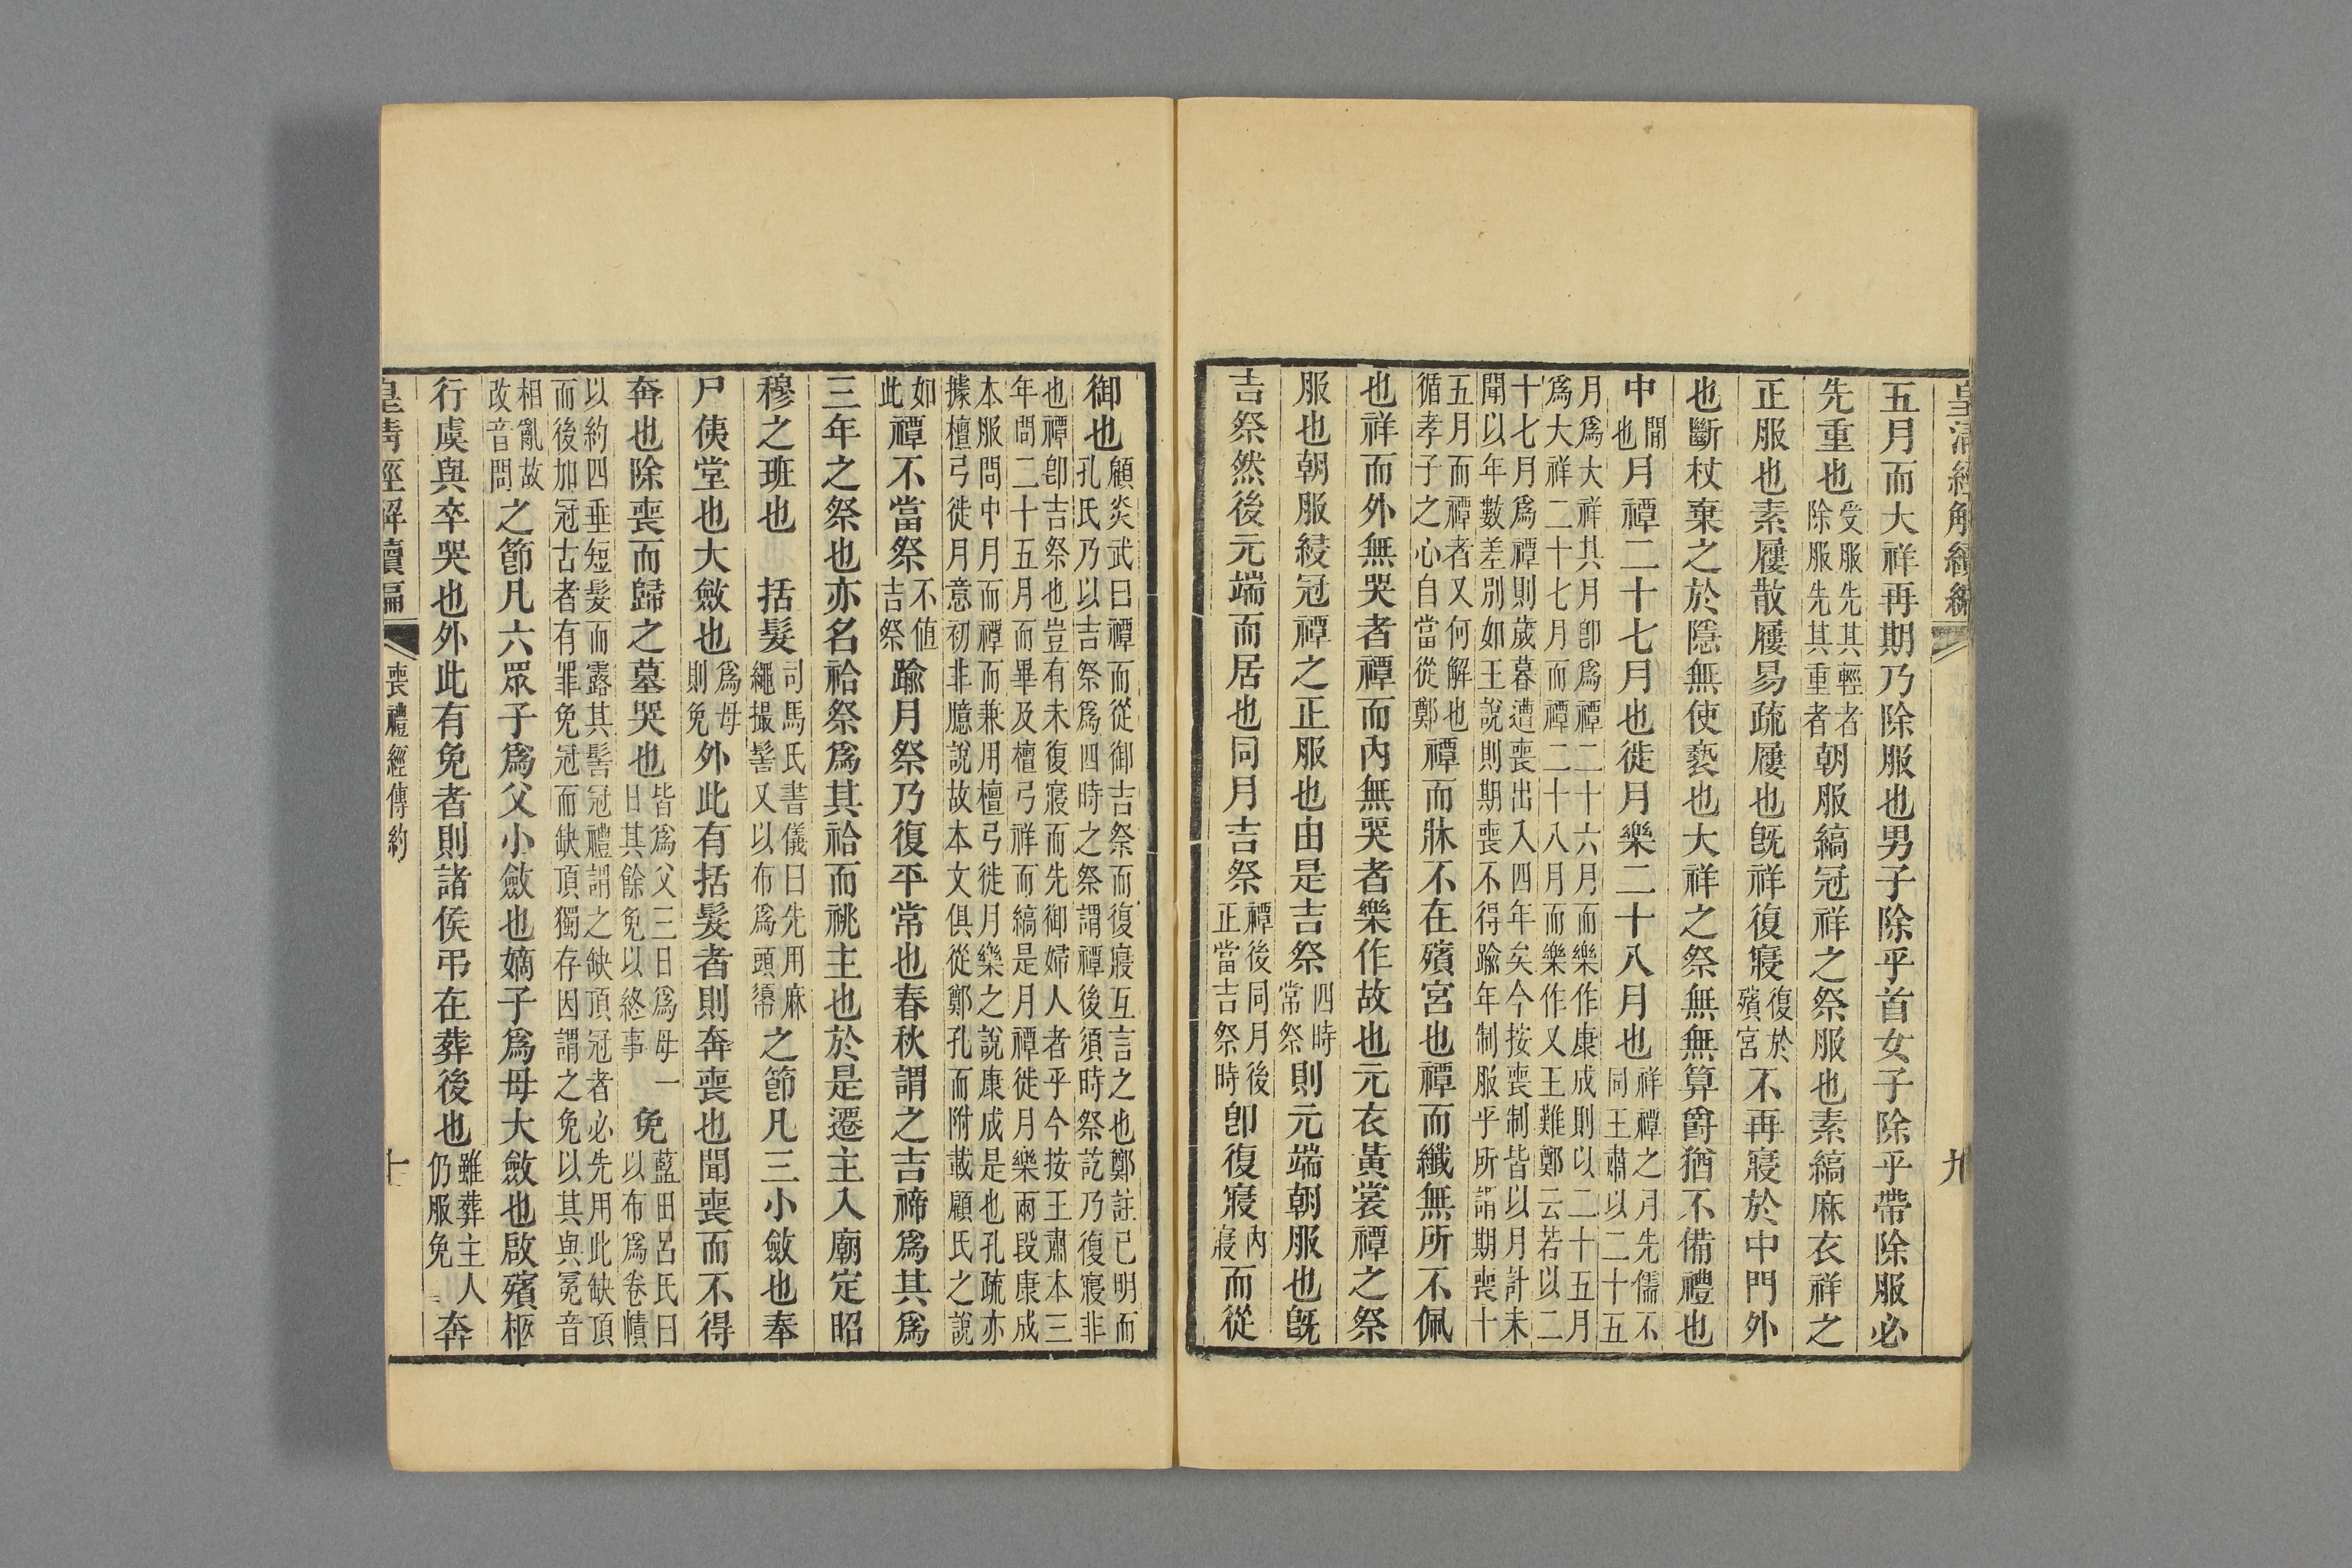 皇清經解續編
九
五月而大祥再期乃除服也男子除乎首女子除乎帶除服必
先重也受服先其輕者除服先其重者朝服縞冠祥之祭服也素縞麻衣祥之
正服也素屨散屨易疏屨也既祥復寢復於殯宮不再寢於中門外
也斷杖棄之於隱無使褻也大祥之祭無無算爵猶不備禮也
中閒也月禫二十七月也徙月樂二十八月也祥禫之月先儒不同王肅以二十五
月爲大祥其月卽爲禫二十六月而樂作康成則以二十五月
爲大祥二十七月而禫二十八月而樂作又王難鄭云若以二
十七月爲禫則歲暮遭喪出入四年矣今按喪制皆以月計未
聞以年數差別如王說則期喪不得踰年制服乎所謂期喪十
五月而禫者又何解也
循孝子之心自當從鄭禫而牀不在殯宮也禫而纖無所不佩
也祥而外無哭者禫而內無哭者樂作故也元衣黃裳禫之祭
服也朝服綅冠禫之正服也由是吉祭四時常祭則元端朝服也旣
吉祭然後元端而居也同月吉祭禫後同月後正當吉祭時卽復寢內寢而從
御也顧炎武曰禫而從御吉祭而復寢互言之也鄭註已明而
孔氏乃以吉祭爲四時之祭謂禫後須時祭訖乃復寢非
也禫卽吉祭也豈有未復寢而先御婦人者乎今按王肅本三
年問二十五月而畢及檀弓祥而縞是月禫徙月樂兩段康成
本服問中月而禫而兼用檀弓徙月樂之說康成是也孔疏亦
據檀弓徙月意初非臆說故本文俱從鄭孔而附載顧氏之說
如此禫不當祭不值吉祭踰月祭乃復平常也春秋謂之吉禘爲其爲
三年之祭也亦名祫祭爲其祫而祧主也於是遷主入廟定昭
穆之班也　括髮司馬氏書儀曰先用麻繩撮髻又以布爲頭䋺之節凡三小斂也奉
尸侇堂也大斂也爲母則免外此有括髮者則奔喪也聞喪而不得
奔也除喪而歸之墓哭也皆爲父三日爲母一日其餘免以終事　免藍田呂氏曰以布爲卷幘
以約四垂短髮而露其髻冠禮謂之缺項冠者必先用此缺項
而後加冠古者有罪免冠而缺項獨存因謂之免以其與冕音
相亂故改音問之節凡六眾子爲父小斂也嫡子爲母大斂也啟殯柩
行虞與卒哭也外此有免者則諸侯弔在葬後也雖葬主人仍服免　奔
皇清經解續編
喪禮經傳約
十